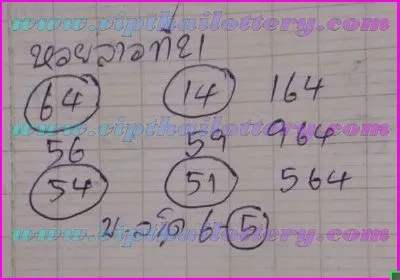 www.vipthailottery.com
หวยลาวที่ 21
64 14 164
www.vipthailottery.com
56 59 964
54 51 564
www.vipthailottery.com
6-5